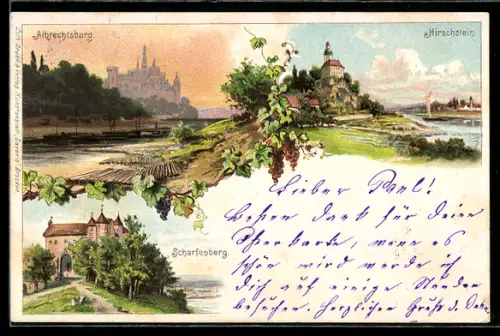 Albrechtsburg.
Hirschstein.
Scharfenberg.
Lieber Paul!
Besten Dank für Deine
Osterkarte, wenn es
schön wird werde ich
Dich auf einige Stunden
besuchen. Herzlichen Gruß d.